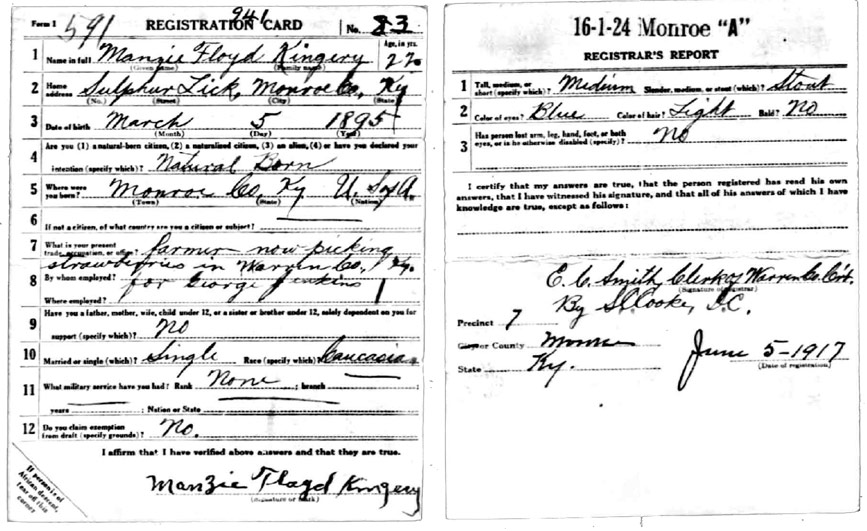 Form 1 591 REGISTRATION CARD 941 No. 83
1 Name in full Manzie Floyd Kingery Age, in yrs. 22
(Given name) (Family name)
2 Home address Sulphur Lick, Monroe Co, Ky
(No.) (Street) (City) (State)
3 Date of birth March 5 1895
(Month) (Day) (Year)
4 Are you (1) a natural-born citizen, (2) a naturalized citizen, (3) an alien, (4) or have you declared your
intention (specify which)? Natural Born
5 Where were you born? Monroe Co. Ky U. S of A.
(Town) (State) (Nation)
6 If not a citizen, of what country are you a citizen or subject?
7 What is your present trade, occupation, or office? farmer now picking
strawberries in Warren Co., Ky.
8 By whom employed? for George Jenkins
Where employed?
9 Have you a father, mother, wife, child under 12, or a sister or brother under 12, solely dependent on you for
support (specify which)? No
10 Married or single (which)? Single Race (specify which)? Caucasian
11 What military service have you had? Rank None ; branch
years ; Nation or State
12 Do you claim exemption from draft (specify grounds)? No.
I affirm that I have verified above answers and that they are true.
Manzie Floyd Kingery
(Signature or mark)
If person is of
African descent,
tear off this
corner
16-1-24 Monroe "A"
REGISTRAR'S REPORT
1 Tall, medium, or short (specify which)? Medium Slender, medium, or stout (which)? Stout
2 Color of eyes? Blue Color of hair? Light Bald? No
3 Has person lost arm, leg, hand, foot, or both eyes, or is he otherwise disabled (specify)? No
I certify that my answers are true, that the person registered has read his own
answers, that I have witnessed his signature, and that all of his answers of which I have
knowledge are true, except as follows:
E. C. Smith, Clerk of Warren Co. Crt.
(Signature of registrar)
By Cooke, D.C.
Precinct 7
City or County Monroe
State Ky.
June 5-1917
(Date of registration)